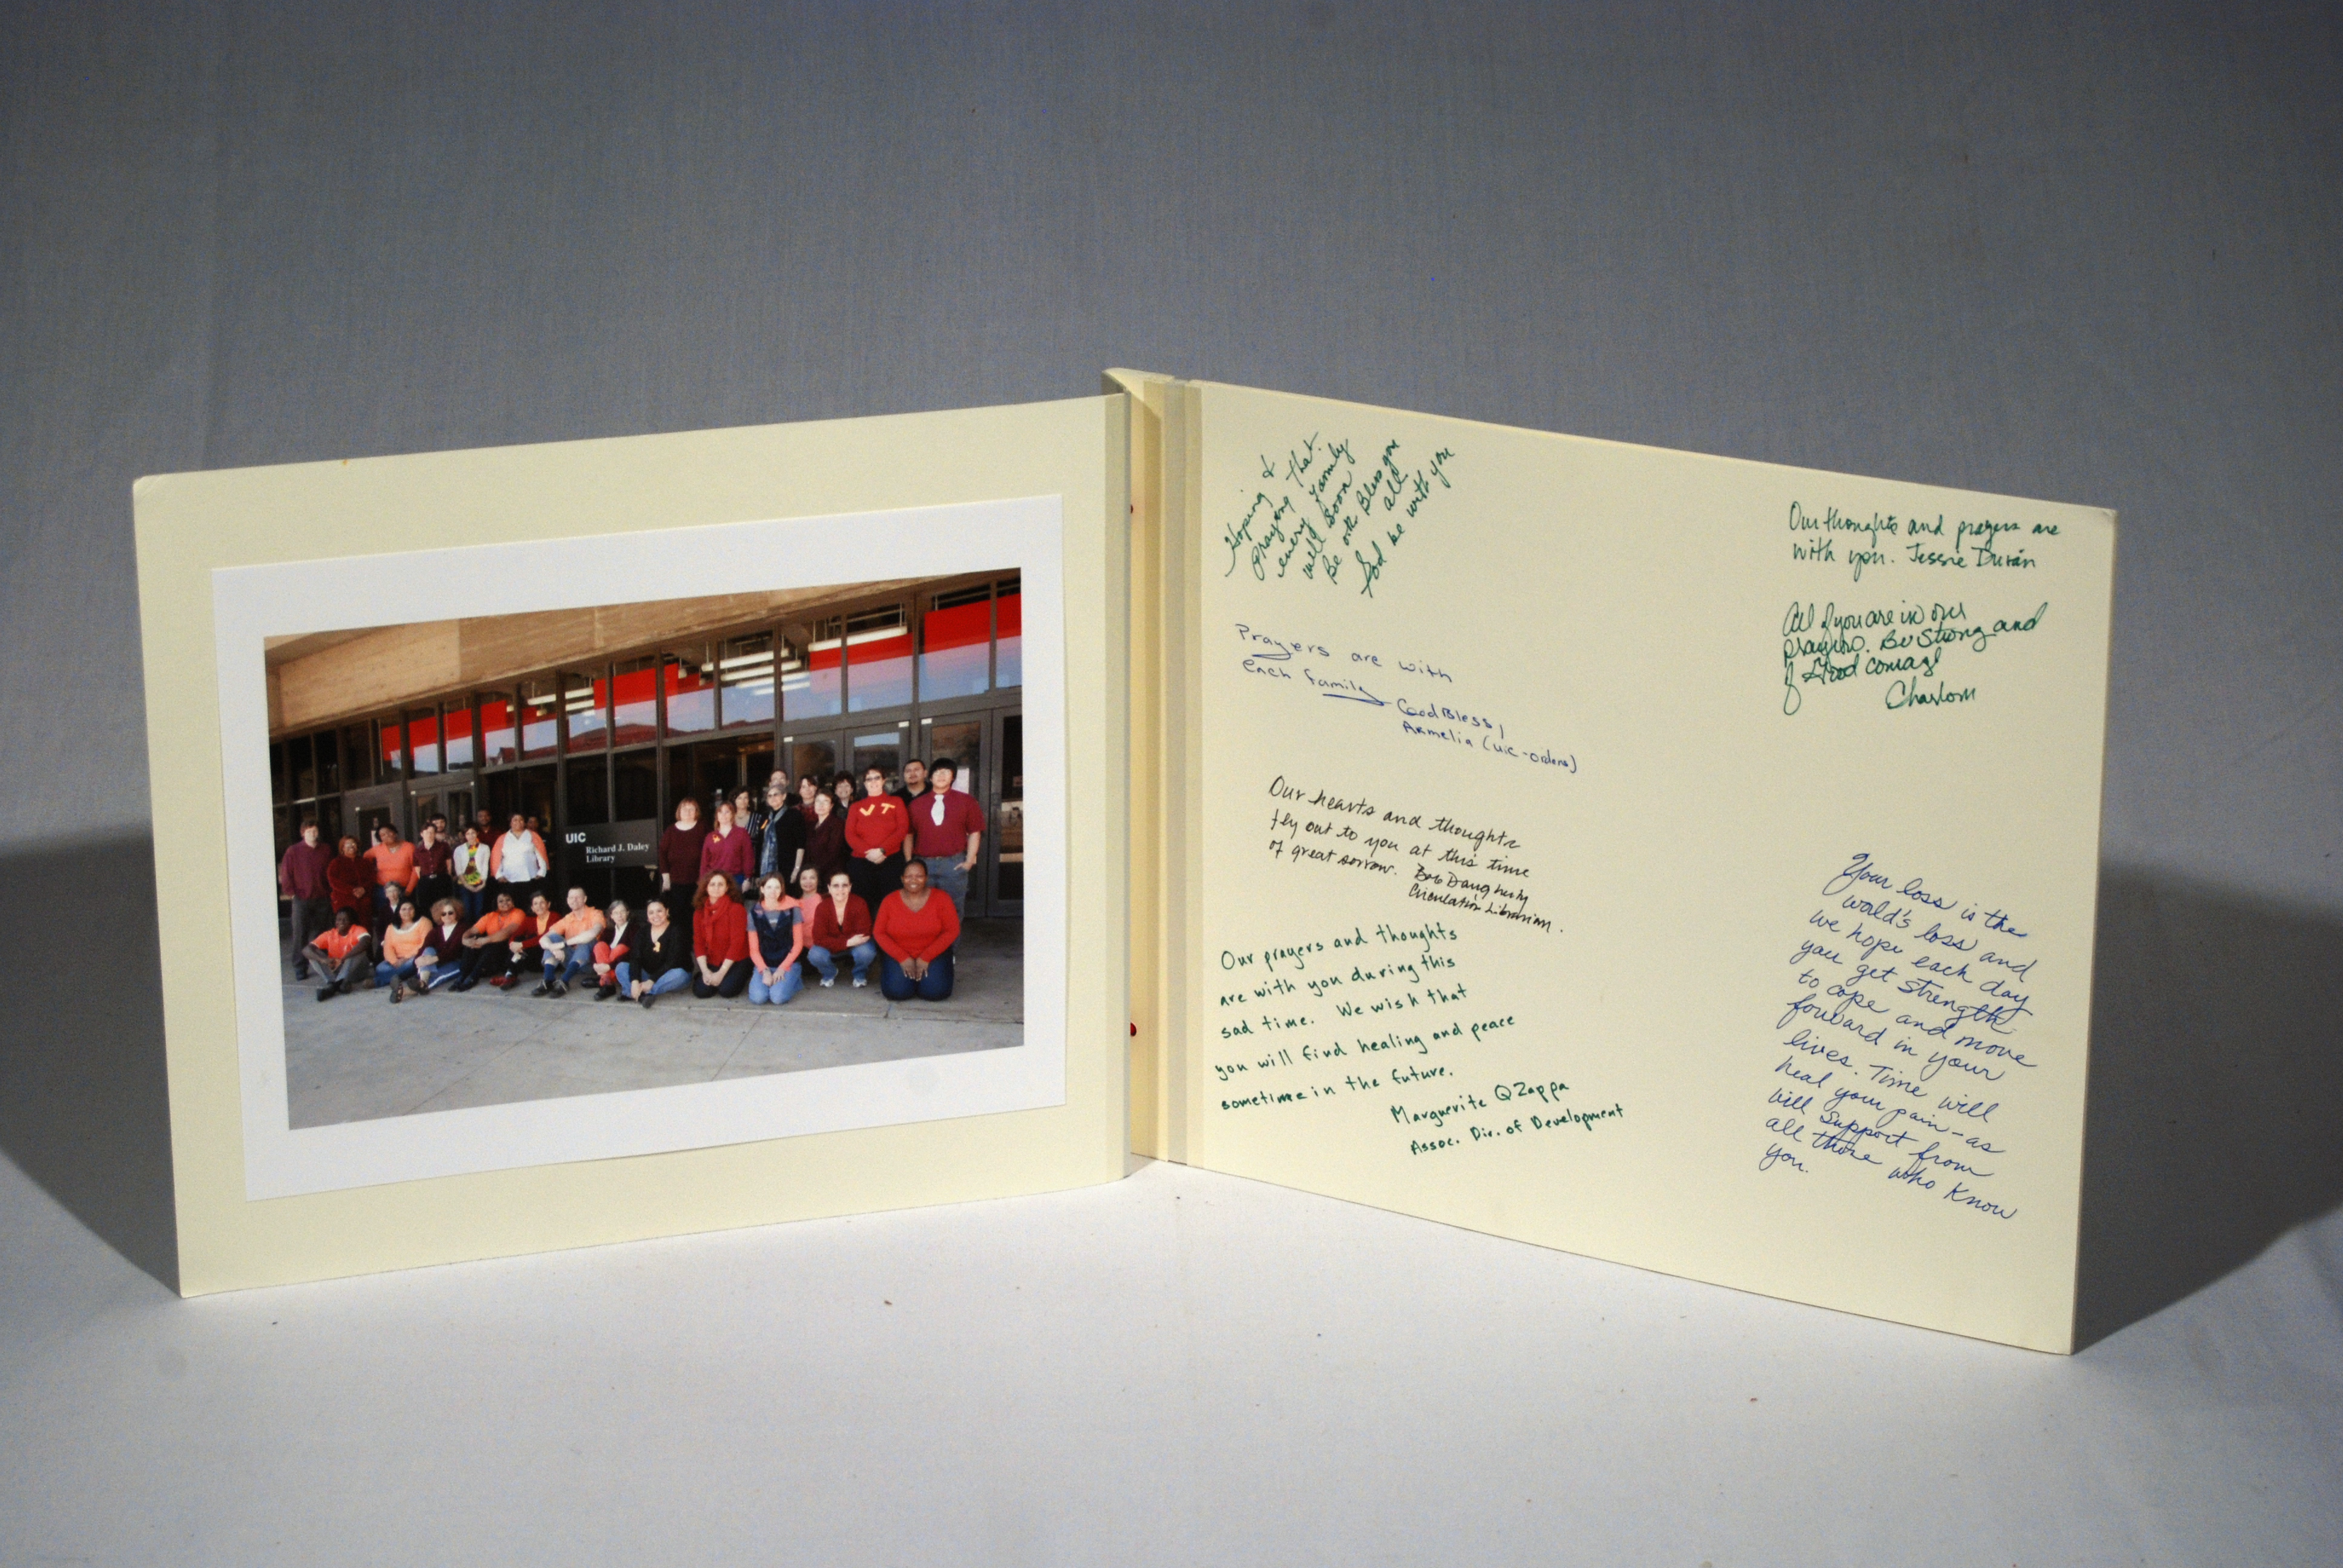 UIC
Richard J. Daley
Library
VT
Hoping &
Praying that
every family
will soon
Be ok Bless you
all
God be with you
Prayers are with
each family
God Bless,
Armelia (UIC-orders)
Our hearts and thoughts
fly out to you at this time
of great sorrow. Bob Daugherty
Circulation Librarian.
Our prayers and thoughts
are with you during this
sad time. We wish that
you will find healing and peace
sometime in the future.
Marguerite Q Zappa
Assoc. Dir. of Development
Our thoughts and prayers are
with you. Jessie Durán
All of you are in our
prayers. Be Strong and
of Good courage
Your loss is the
world's loss and
we hope each day
you get strength
to cope and move
forward in your
lives. Time will
heal your pain - as
will support from
all those who know
you.